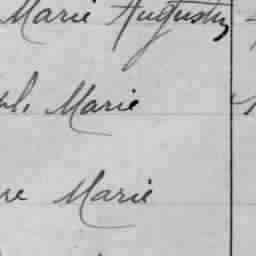 Marie Augustin
Marie
Marie